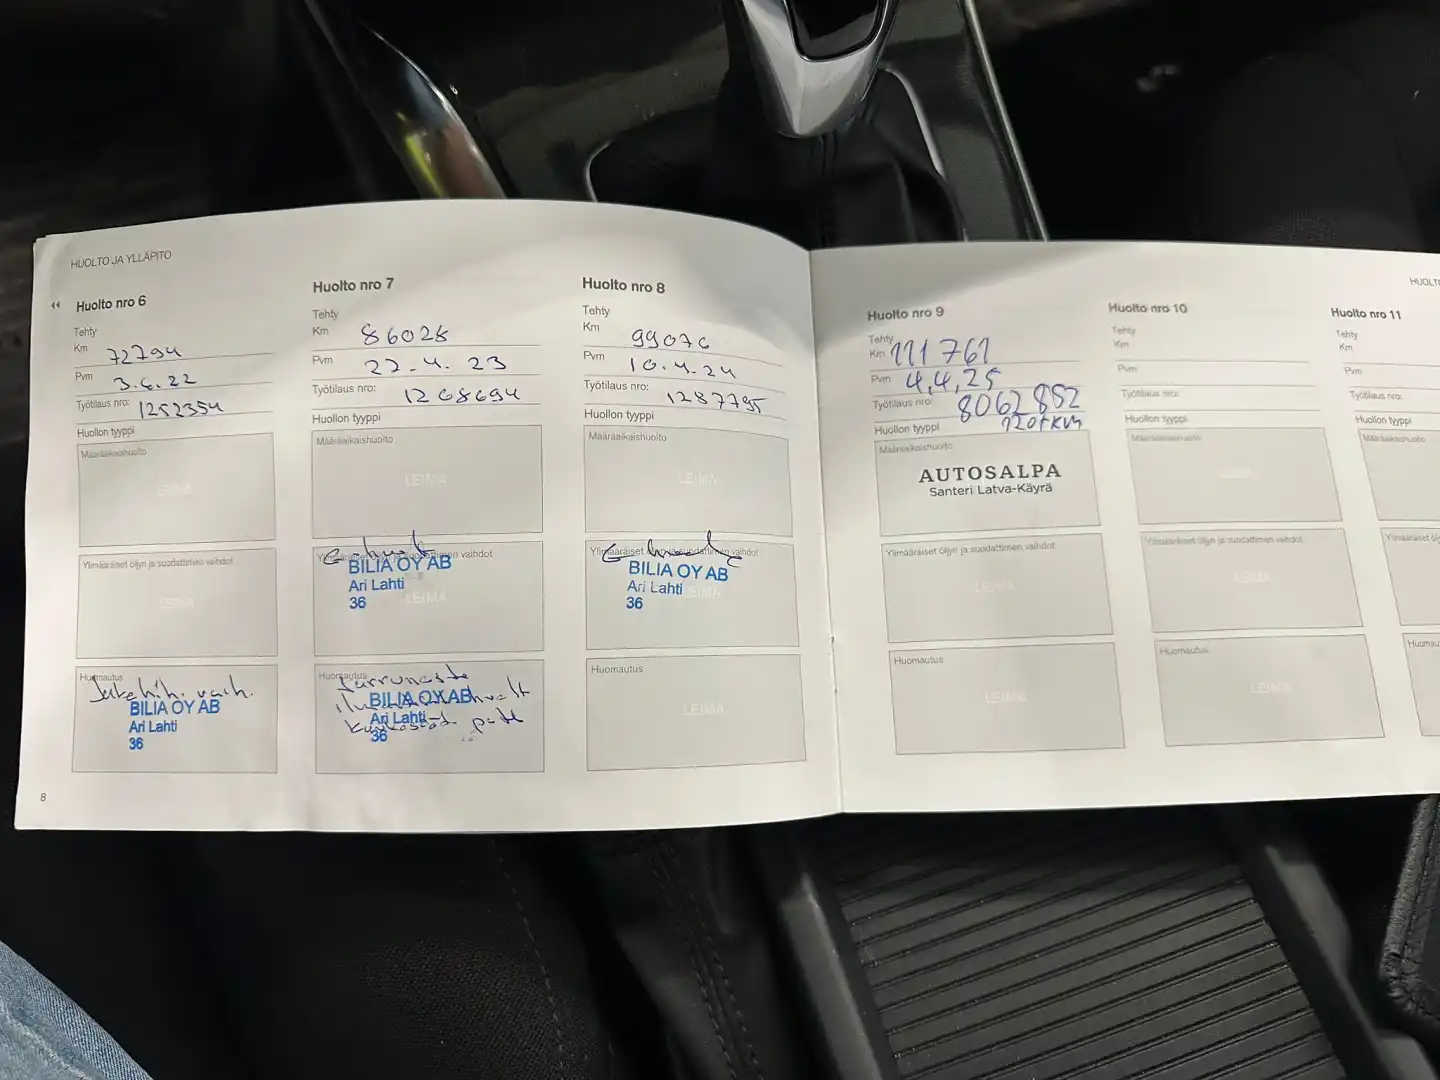 HUOLTO JA YLLÄPITO
Huolto nro 6
Tehty
Km 72794
Pvm 3.6.22
Työtilaus nro: 1252354
Huollon tyyppi
Määräaikaishuolto
LEIMA
Ylimääräiset öljyn ja suodattimen vaihdot
LEIMA
Huomautus
vaih.
BILIA OY AB
Ari Lahti
36
8
Huolto nro 7
Tehty
Km 86028
Pvm 22.4.23
Työtilaus nro: 1268694
Huollon tyyppi
Määräaikaishuolto
LEIMA
Ylimääräiset öljyn ja suodattimen vaihdot
BILIA OY AB
Ari Lahti
36
LEIMA
Huomautus
BILIA OY AB
Ari Lahti
36
Huolto nro 8
Tehty
Km 99076
Pvm 10.4.24
Työtilaus nro: 1287795
Huollon tyyppi
Määräaikaishuolto
LEIMA
Ylimääräiset öljyn ja suodattimen vaihdot
BILIA OY AB
Ari Lahti
36
LEIMA
Huomautus
LEIMA
Huolto nro 9
Tehty
Km 111761
Pvm 4,4,25
Työtilaus nro: 8062852
120tkm
Huollon tyyppi
Määräaikaishuolto
AUTOSALPA
Santeri Latva-Käyrä
Ylimääräiset öljyn ja suodattimen vaihdot
LEIMA
Huomautus
LEIMA
Huolto nro 10
Tehty
Km
Pvm
Työtilaus nro:
Huollon tyyppi
Määräaikaishuolto
LEIMA
Ylimääräiset öljyn ja suodattimen vaihdot
LEIMA
Huomautus
LEIMA
HUOLTO
Huolto nro 11
Tehty
Km
Pvm
Työtilaus nro:
Huollon tyyppi
Määräaikaishuolto
Ylimääräiset öl
Huomau